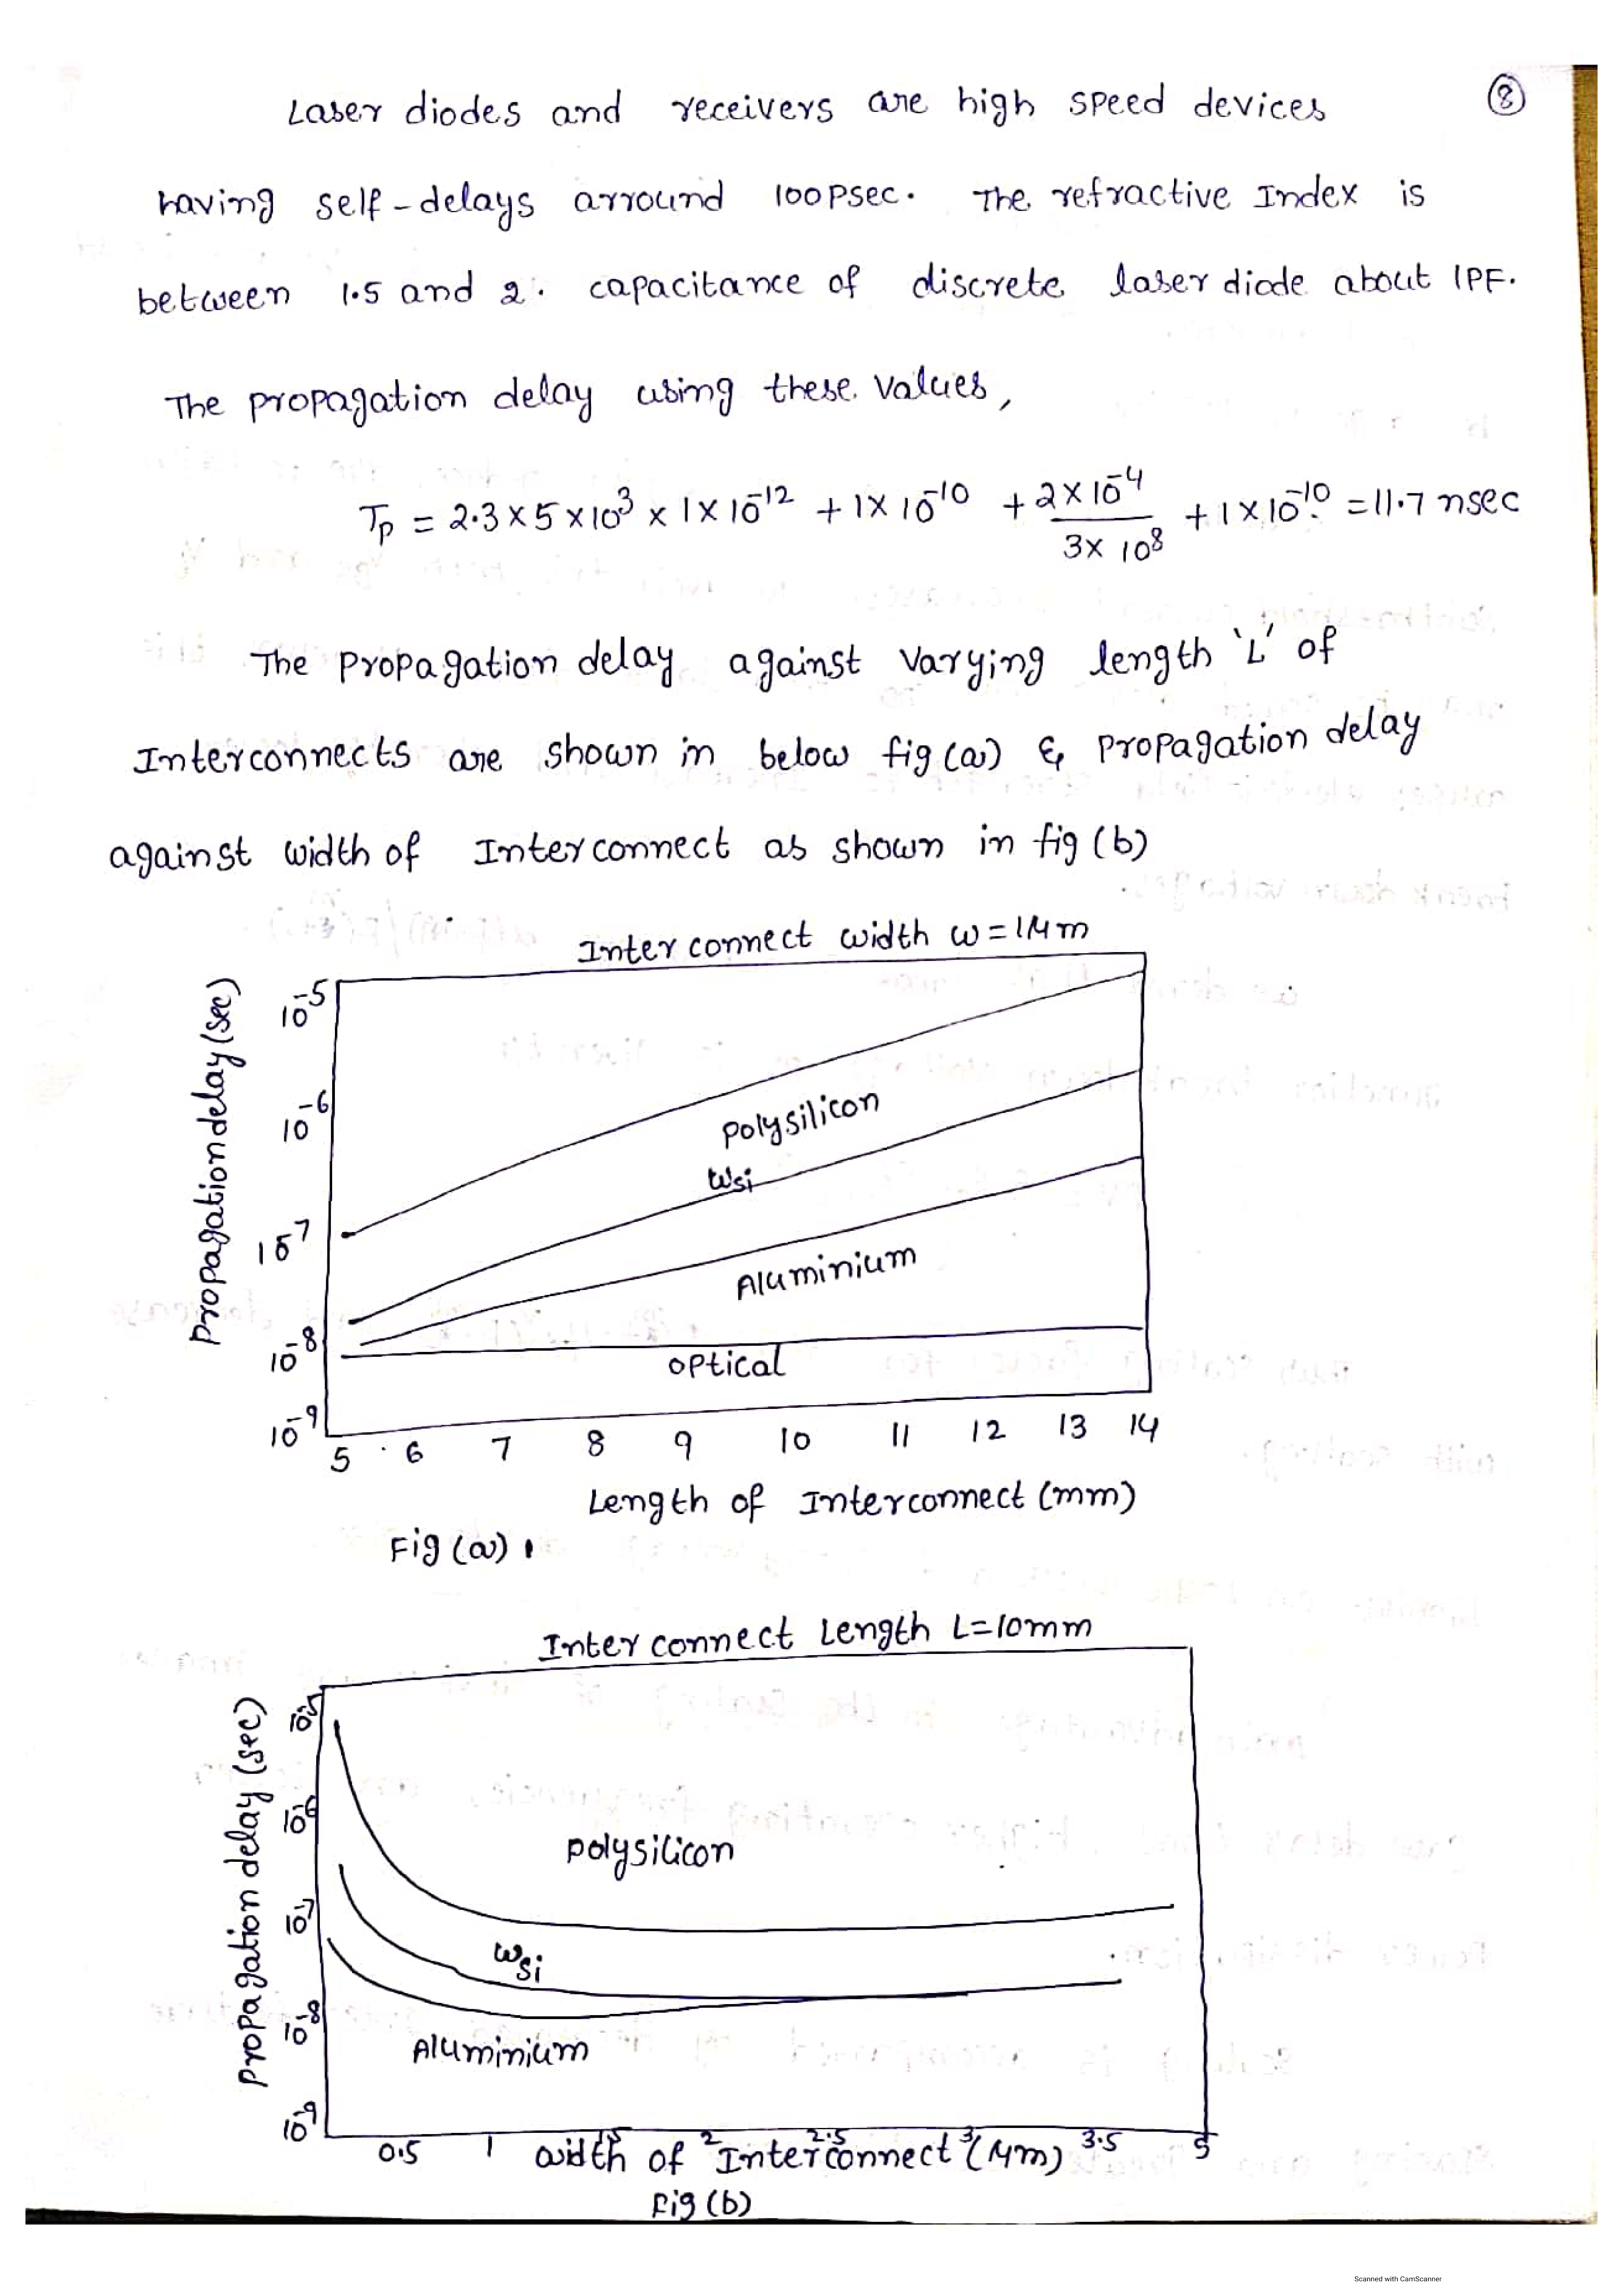 8
Laser diodes and receivers are high speed devices
having self-delays arround 100Psec. The refractive Index is
between 1.5 and 2. capacitance of discrete laser diode about 1PF.
The propagation delay using these values,
Tp = 2.3 x 5 x 10³ x 1 x 10⁻¹² + 1 x 10⁻¹⁰ + 2 x 10⁻⁴ / 3 x 10⁸ + 1 x 10⁻¹⁰ = 11.7 nsec
The propagation delay against varying length 'L' of
Interconnects are shown in below fig (a) & propagation delay
against width of Interconnect as shown in fig (b)
Interconnect width w = 1μm
Propagation delay (sec)
10⁻⁵
10⁻⁶
10⁻⁷
10⁻⁸
10⁻⁹
polysilicon
Wsi
Aluminium
optical
5 6 7 8 9 10 11 12 13 14
Length of Interconnect (mm)
Fig (a)
Interconnect Length L=10mm
Propagation delay (sec)
10⁻⁵
10⁻⁶
10⁻⁷
10⁻⁸
10⁻⁹
polysilicon
Wsi
Aluminium
0.5 1 2 2.5 3 3.5
width of Interconnect (μm)
Fig (b)
Scanned with CamScanner